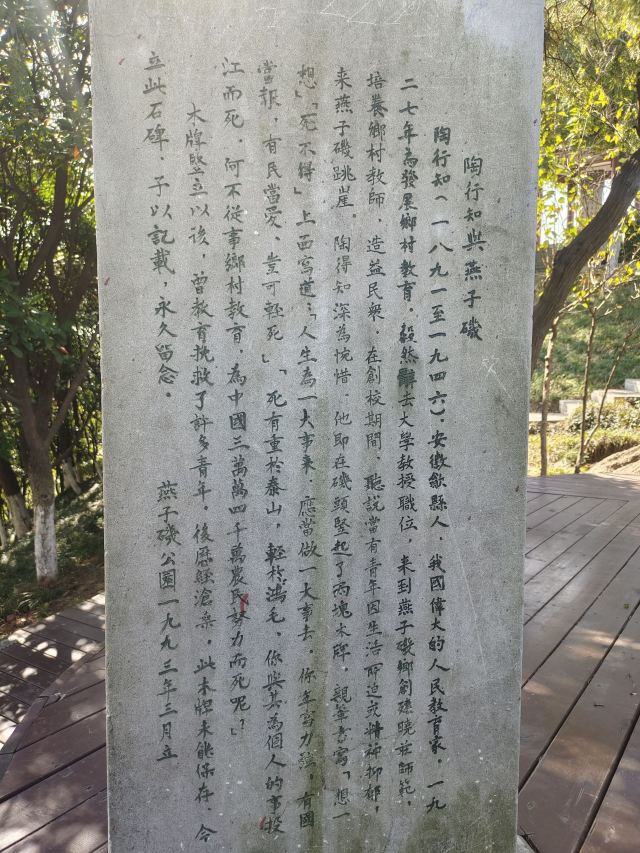 陶行知與燕子磯
陶行知(一八九一至一九四六),安徽歙縣人,我國偉大的人民教育家,一九
二七年為發展鄉村教育,毅然辭去大學教授職位,来到燕子磯鄉創辦曉莊師範,
培養鄉村教師,造益民衆,在創校期間,聽說當有青年因生活所迫或精神抑郁,
来燕子磯跳崖。陶得知深為惋惜,他即在磯頭竪起了两塊木牌,親筆書寫「想一
想」「死不得」上面寫道:「人生為一大事来,應當做一大事去,你年富力强,有國
當報,有民當愛,豈可輕死」「死有重於泰山,輕於鴻毛,你與其為個人的事投
江而死,何不從事鄉村教育,為中國三萬萬四千萬農民努力而死呢?」
木牌竪立以後,曾教育挽救了許多青年,後歷經滄桑,此木牌未能保存,今
立此石碑,予以記載,永久留念。
燕子磯公園一九九三年三月立